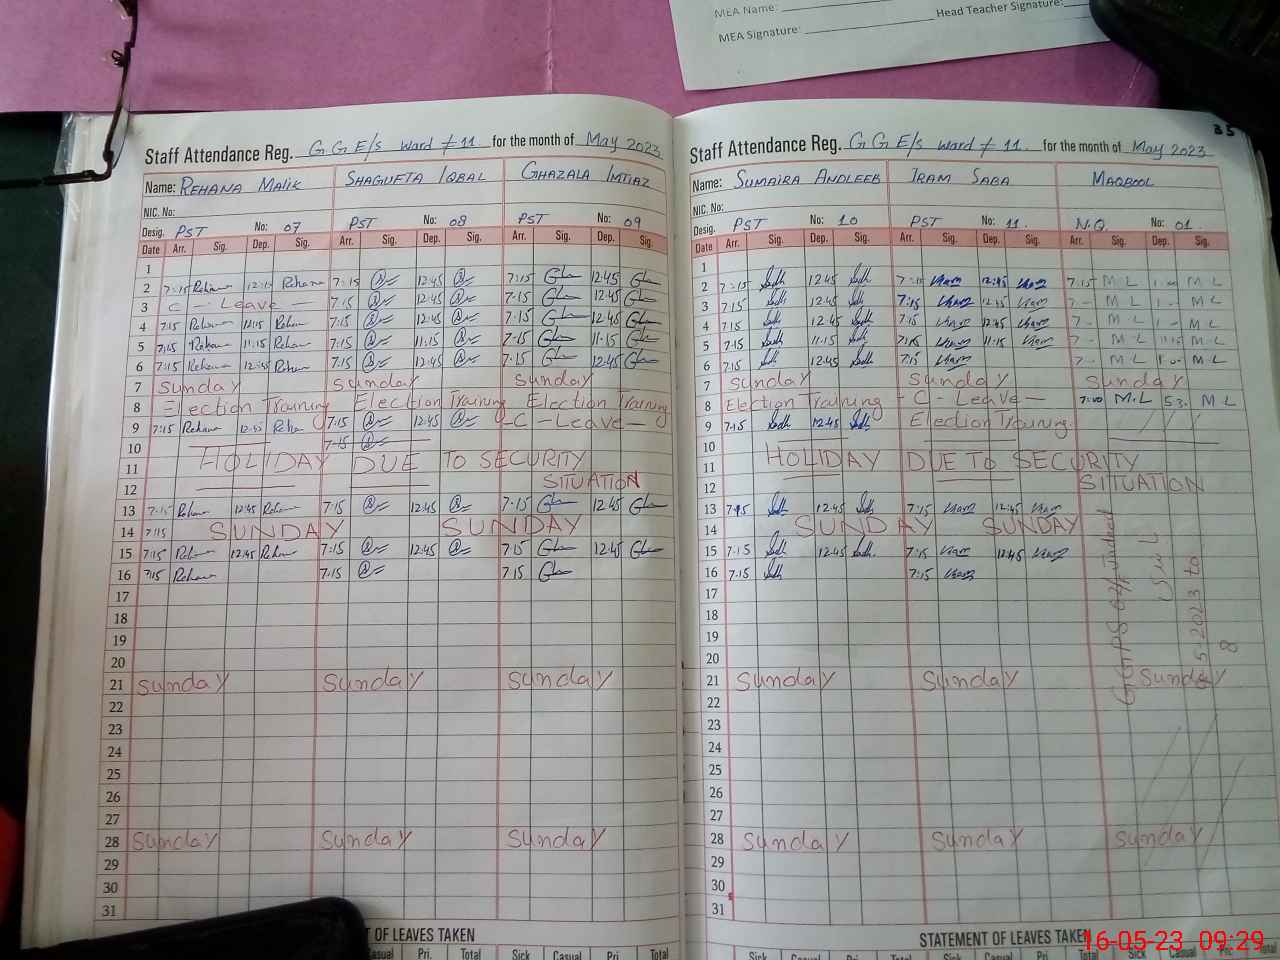 MEA Name:
MEA Signature: Head Teacher Signature:
35
Staff Attendance Reg. G G E/s ward # 11 for the month of May 2023
Name: REHANA MALIK SHAGUFTA IQBAL GHAZALA IMTIAZ
NIC. No:
Desig. PST No: 07 PST No: 08 PST No: 09
Date Arr. Sig. Dep. Sig. Arr. Sig. Dep. Sig. Arr. Sig. Dep. Sig.
1
2 7:15 Rehana 12:15 Rehana 7:15 12:45 7:15 12:45
3 C - Leave - 7:15 12:45 7:15 12:45
4 7:15 Rehana 12:15 Rehana 7:15 12:45 7:15 12:45
5 7:15 Rehana 11:15 Rehana 7:15 11:15 7:15 11:15
6 7:15 Rehana 12:45 Rehana 7:15 12:45 7:15 12:45
7 Sunday Sunday Sunday
8 Election Training Election Training Election Training
9 7:15 Rehana 12:45 Rehana 7:15 12:45 - C - Leave -
10 7:15
11 HOLIDAY DUE TO SECURITY
12 SITUATION
13 7:15 Rehana 12:45 Rehana 7:15 12:45 7:15 12:45
14 7:15 SUNDAY SUNDAY
15 7:15 Rehana 12:45 Rehana 7:15 12:45 7:15 12:45
16 7:15 Rehana 7:15 7:15
17
18
19
20
21 Sunday Sunday Sunday
22
23
24
25
26
27
28 Sunday Sunday Sunday
29
30
31
T OF LEAVES TAKEN
Casual Pri. Total Sick Casual Pri. Total
Staff Attendance Reg. G G E/s ward # 11. for the month of May 2023
Name: SUMAIRA ANDLEEB IRAM SABA MAQBOOL
NIC. No:
Desig. PST No: 10 PST No: 11. N.Q. No: 01
Date Arr. Sig. Dep. Sig. Arr. Sig. Dep. Sig. Arr. Sig. Dep. Sig.
1
2 7:15 12:45 7:15 12:45 7:15 M L M L
3 7:15 12:45 7:15 12:45 M L M L
4 7:15 12:45 7:15 12:45 M L M L
5 7:15 11:15 7:15 11:15 M L 11:15 M L
6 7:15 12:45 7:15 M L M L
7 Sunday Sunday Sunday
8 Election Training - C - Leave - 7:00 M.L M L
9 7:15 12:45 Election Training
10
11 HOLIDAY DUE TO SECURITY
12 SITUATION
13 7:15 12:45 7:15 12:45
14 SUNDAY SUNDAY
15 7:15 12:45 7:15 12:45
16 7:15 7:15
17
18
19
20
21 Sunday Sunday Sunday
22
23
24
25
26
27
28 Sunday Sunday Sunday
29
30
31
STATEMENT OF LEAVES TAKEN
Sick Casual Pri. Total Sick Casual Pri. Total
16-05-23 09:29